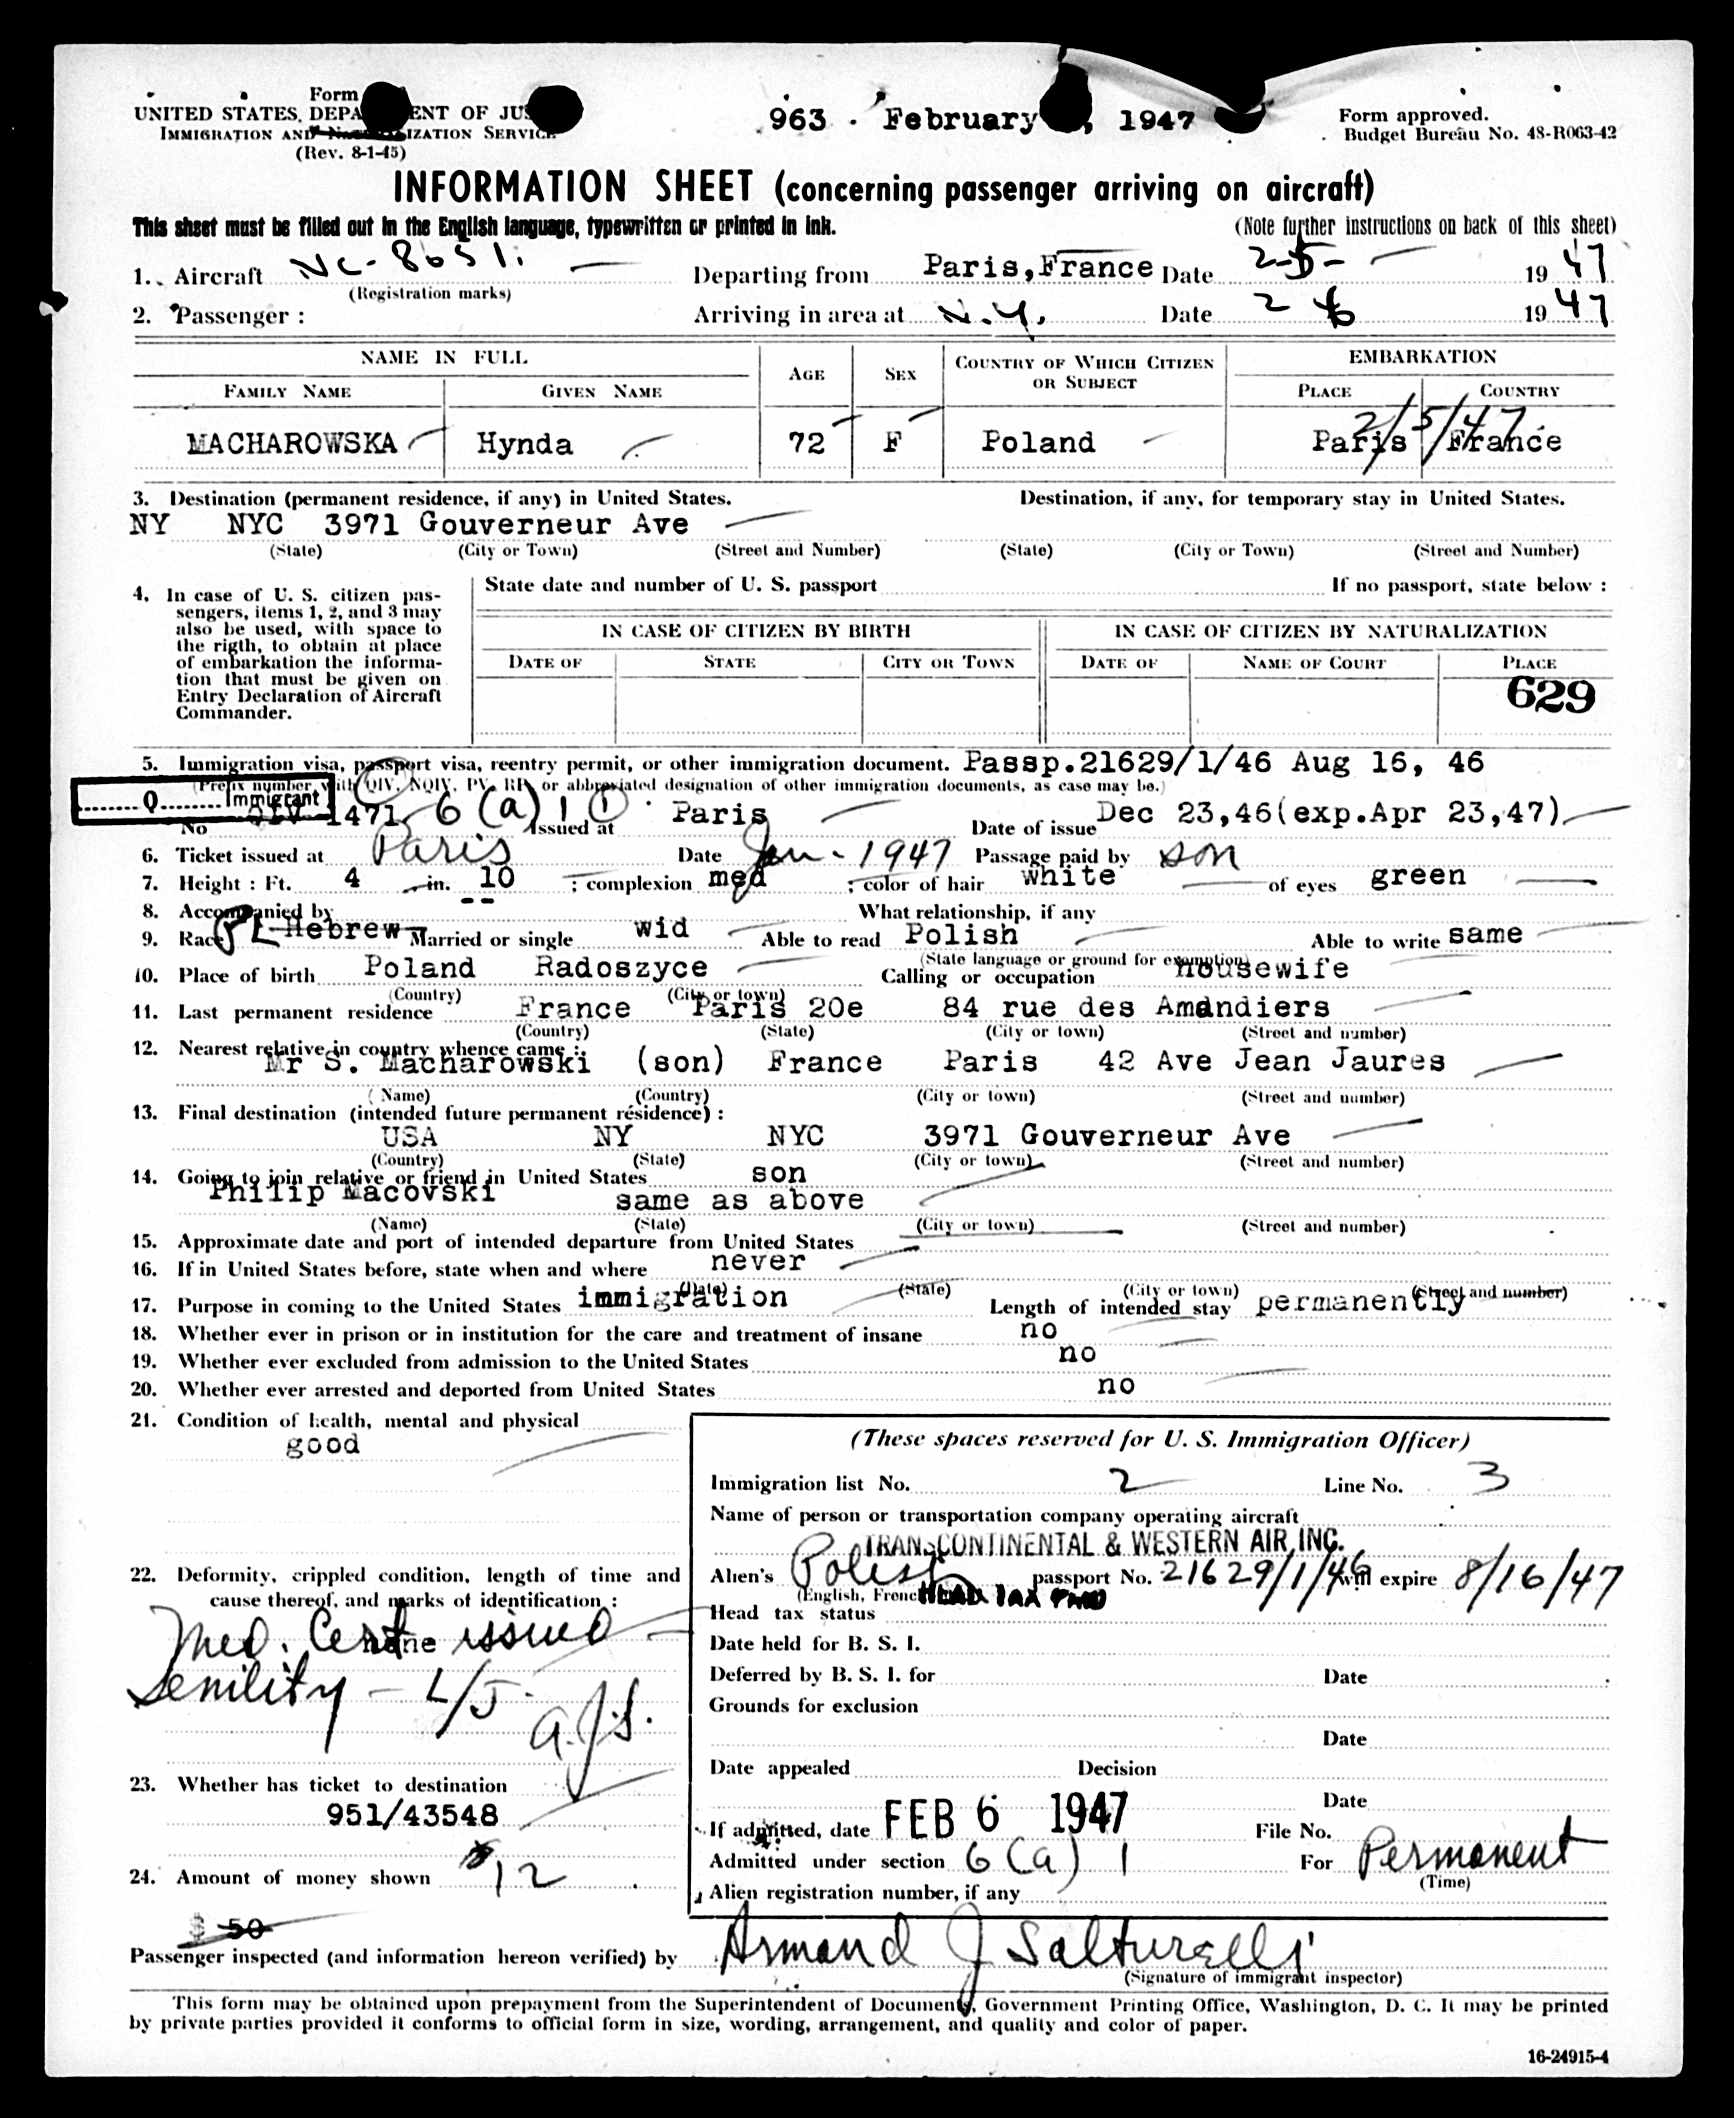 Form
UNITED STATES DEPA ENT OF JUS
IMMIGRATION AND NATURALIZATION SERVICE
(Rev. 8-1-45)
963 February , 1947
Form approved.
Budget Bureau No. 48-R063-42
INFORMATION SHEET (concerning passenger arriving on aircraft)
This sheet must be filled out in the English language, typewritten or printed in ink.
(Note further instructions on back of this sheet)
1. Aircraft NC-8651 Departing from Paris, France Date 2-5- 1947
(Registration marks)
2. Passenger : Arriving in area at N.Y. Date 2 6 1947
NAME IN FULL AGE SEX COUNTRY OF WHICH CITIZEN OR SUBJECT EMBARKATION
FAMILY NAME GIVEN NAME PLACE COUNTRY
2/5/47
MACHAROWSKA Hynda 72 F Poland Paris France
3. Destination (permanent residence, if any) in United States. Destination, if any, for temporary stay in United States.
NY NYC 3971 Gouverneur Ave
(State) (City or Town) (Street and Number) (State) (City or Town) (Street and Number)
4. In case of U. S. citizen pas-
sengers, items 1, 2, and 3 may
also be used, with space to
the rigth, to obtain at place
of embarkation the informa-
tion that must be given on
Entry Declaration of Aircraft
Commander.
State date and number of U. S. passport If no passport, state below :
IN CASE OF CITIZEN BY BIRTH IN CASE OF CITIZEN BY NATURALIZATION
DATE OF STATE CITY OR TOWN DATE OF NAME OF COURT PLACE
629
5. Immigration visa, passport visa, reentry permit, or other immigration document. Passp.21629/1/46 Aug 16, 46
(Prefix number with QIV, NQIV, PV, RP, or abbreviated designation of other immigration documents, as case may be.)
Q Immigrant
No QIV 1471 6(a)1 1 Issued at Paris Date of issue Dec 23,46(exp.Apr 23,47)
6. Ticket issued at Paris Date Jan - 1947 Passage paid by son
7. Height : Ft. 4 in. 10 ; complexion med ; color of hair white of eyes green
8. Accompanied by What relationship, if any
9. Race PL Hebrew Married or single wid Able to read Polish Able to write same
(State language or ground for exemption)
10. Place of birth Poland Radoszyce Calling or occupation housewife
(Country) (City or town)
11. Last permanent residence France Paris 20e 84 rue des Amandiers
(Country) (State) (City or town) (Street and number)
12. Nearest relative in country whence came :
Mr S. Macharowski (son) France Paris 42 Ave Jean Jaures
(Name) (Country) (City or town) (Street and number)
13. Final destination (intended future permanent résidence) :
USA NY NYC 3971 Gouverneur Ave
(Country) (State) (City or town) (Street and number)
14. Going to join relative or friend in United States son
Philip Macovski same as above
(Name) (State) (City or town) (Street and number)
15. Approximate date and port of intended departure from United States
16. If in United States before, state when and where never
(Date) (State) (City or town) (Street and number)
17. Purpose in coming to the United States immigration Length of intended stay permanently
18. Whether ever in prison or in institution for the care and treatment of insane no
19. Whether ever excluded from admission to the United States no
20. Whether ever arrested and deported from United States no
21. Condition of health, mental and physical
good
22. Deformity, crippled condition, length of time and
cause thereof, and marks of identification :
none
Med. Cert issued
Senility - L/J
a.J.S.
23. Whether has ticket to destination
951/43548
24. Amount of money shown $12
$ 50
(These spaces reserved for U. S. Immigration Officer)
Immigration list No. 2 Line No. 3
Name of person or transportation company operating aircraft
TRANSCONTINENTAL & WESTERN AIR INC.
Alien's Polish passport No. 21629/1/46 will expire 8/16/47
(English, French
HEAD TAX PAID
Head tax status
Date held for B. S. I.
Deferred by B. S. I. for Date
Grounds for exclusion
Date
Date appealed Decision
Date
If admitted, date FEB 6 1947 File No.
Admitted under section 6(a) 1 For Permanent
(Time)
Alien registration number, if any
Passenger inspected (and information hereon verified) by Armand J Salturelli
(Signature of immigrant inspector)
This form may be obtained upon prepayment from the Superintendent of Documents, Government Printing Office, Washington, D. C. It may be printed
by private parties provided it conforms to official form in size, wording, arrangement, and quality and color of paper.
16-24915-4